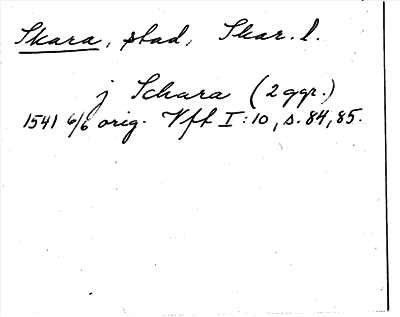 Skara, stad, Skar. l.
j Schara (2 ggr.)
1541 6/6 orig. Vft I:10, s. 84, 85.